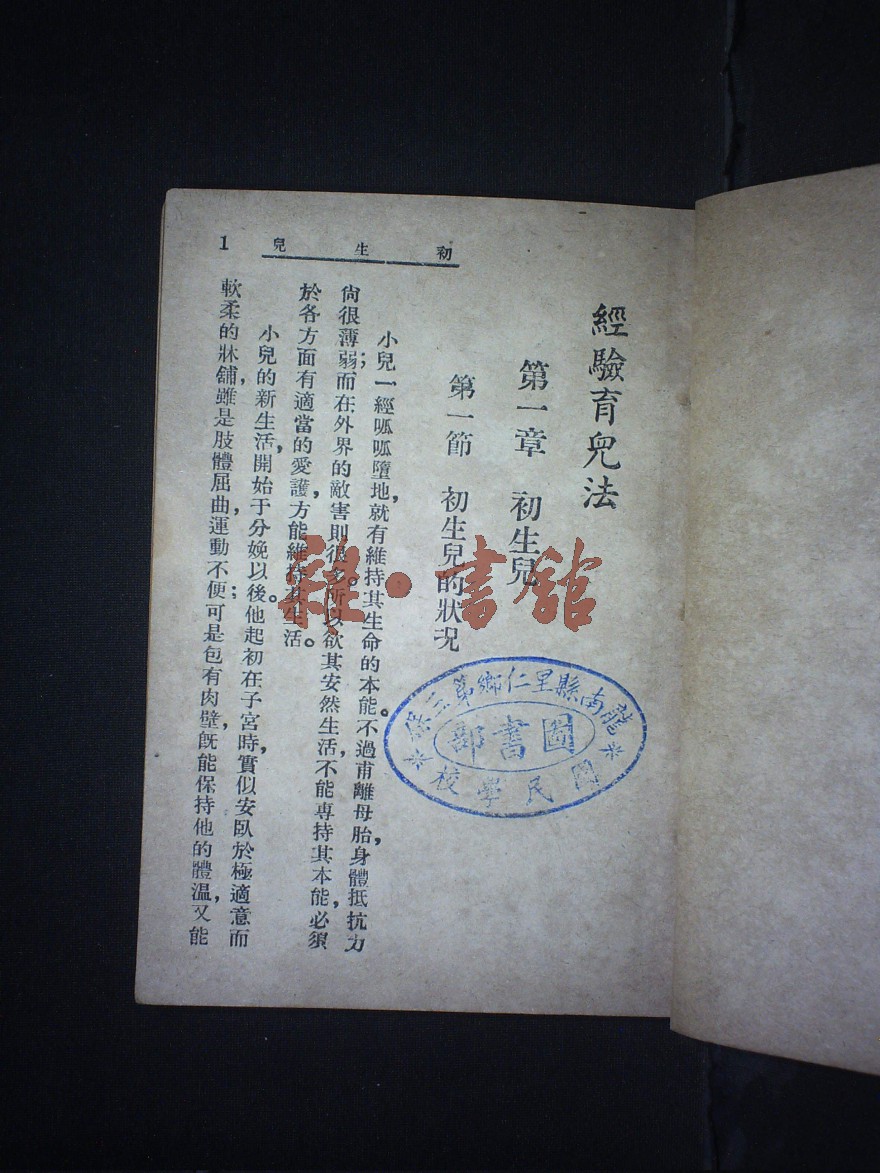 經驗育兒法
第一章　初生兒
第一節　初生兒的狀況
小兒一經呱呱墮地，就有維持其生命的本能。不過甫離母胎，身體抵抗力
尙很薄弱；而在外界的敵害則很多。所以欲其安然生活，不能專持其本能，必須
於各方面有適當的愛護，方能維持其生活。
小兒的新生活，開始于分娩以後。他起初在子宮時，實似安臥於極適意而
軟柔的牀舖，雖是肢體屈曲，運動不便；可是包有肉壁，旣能保持他的體溫，又能
初生兒
1
龍南縣里仁鄉第三保
國民學校
圖書部
雜·書館